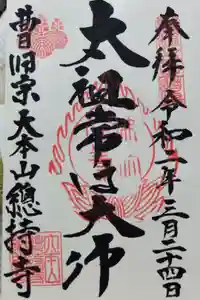 奉拝 令和二年三月二十四日
太祖常済大師
曹洞宗大本山總持寺